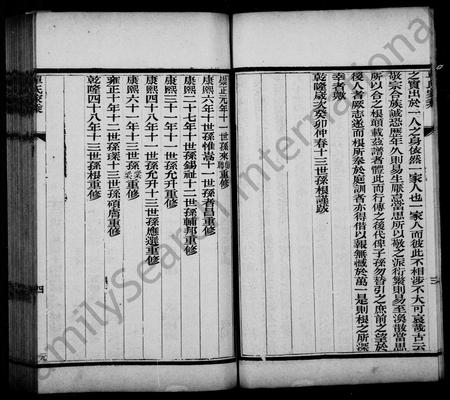 之實出於一人之身依然一家人也一家人而彼此不相涉不大可哀哉古云
敬宗合族誠恐歷年久則易生厭意當思所以敬之派衍繁則易至渙散當思
所以合之根頭載茲譜者體此而行傳之後代俾子孫勿替引之庶前之望於
後人者厥志遂而根所奉於庭訓者亦得借以報無憾於萬一是則根之所深
幸者歟
乾隆歲次癸卯仲春十三世孫根謹跋
正元年十一世孫來聘重修
康熙六年十世孫惟嵩十一世孫者昌重修
康熙二十七年十世孫錫祉十二世孫輔邦重修
康熙三十一年十一世孫允升重修
康熙四十八年十一世孫允升十三世孫應選重修
康熙六十一年十三世孫重修
雍正十年十二世孫琛十三世孫碩膚重修
乾隆四十八年十三世孫根重修
氏家乘
四
氏家乘
三
FamilySearch International